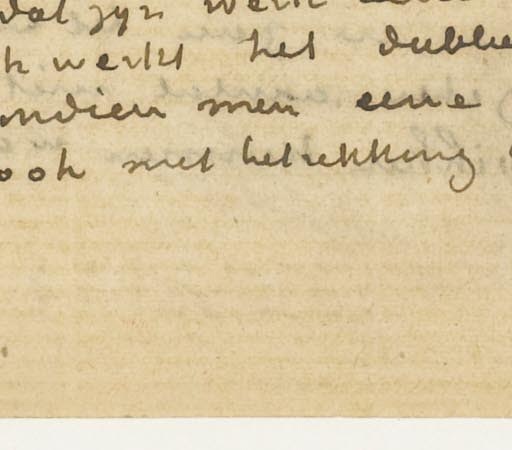 dat zyn werk
k werkt het dubbe
indien men eene
ook met betrekking